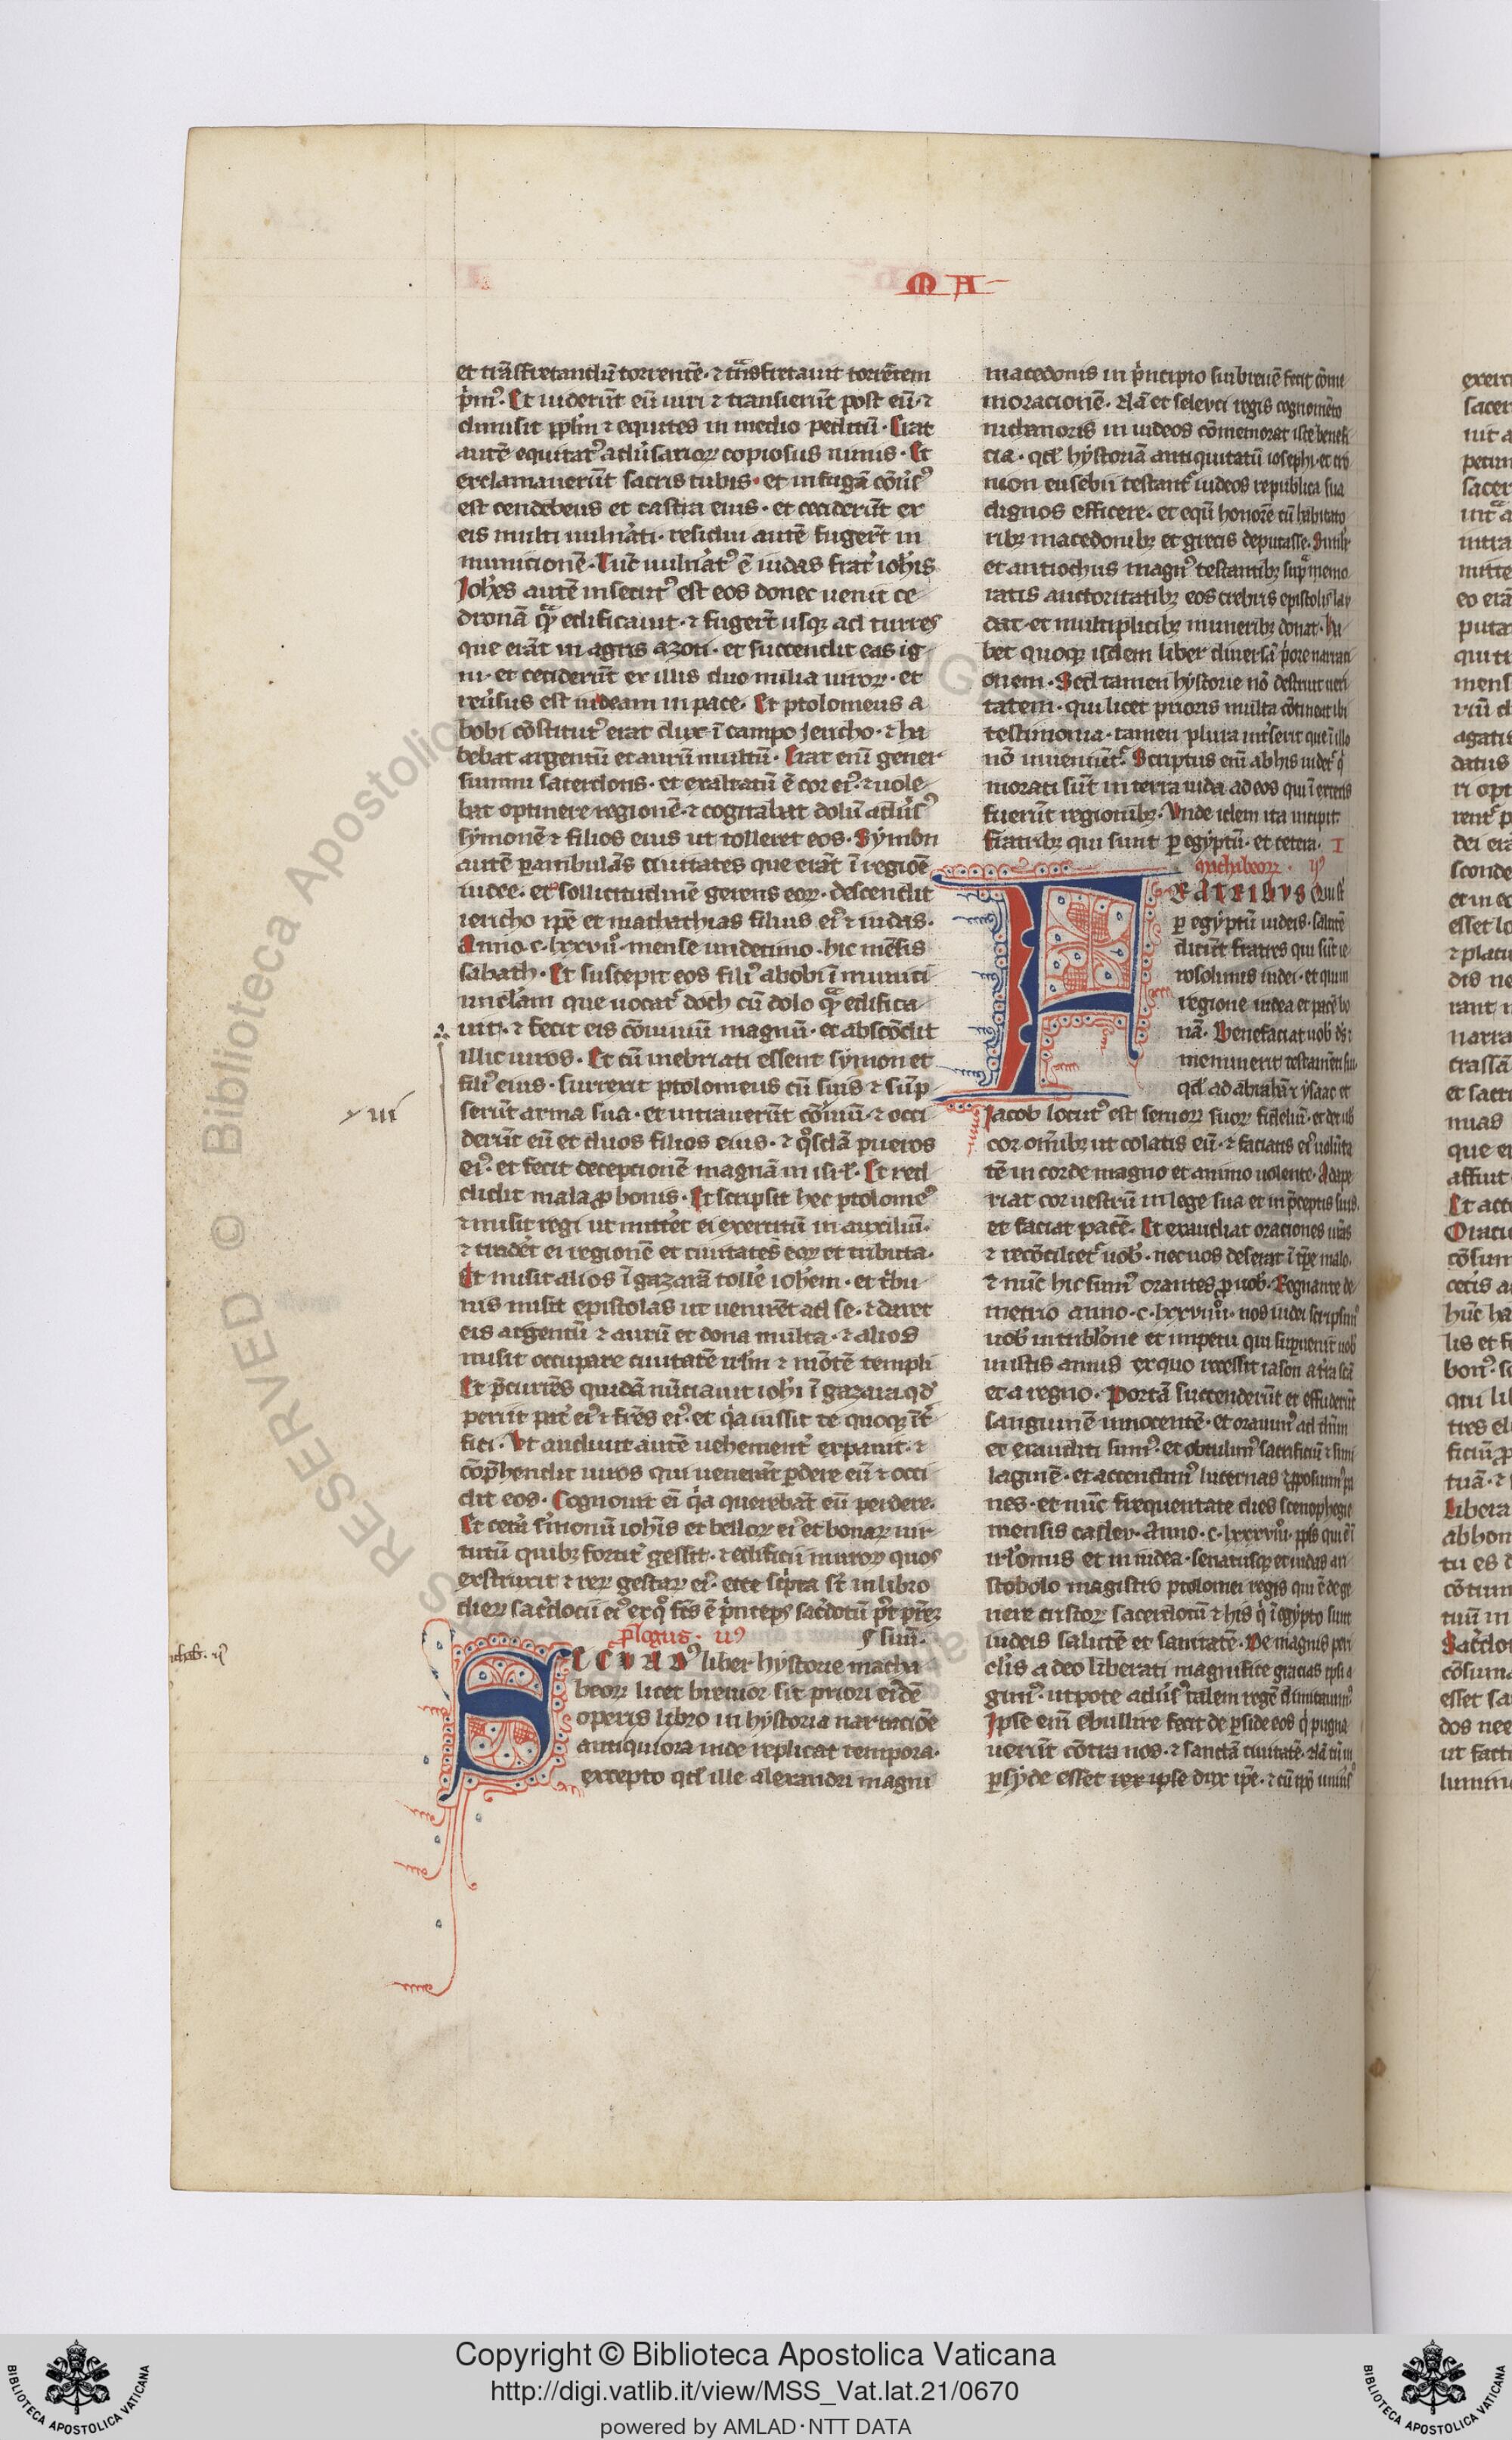 M A
et trãsfretandũ torrentẽ · ⁊ trãsfretauit torrẽtem
p̃m᷒ · Et uiderũt eũ uiri ⁊ transierũt post eũ · ⁊
diuisit pplm ⁊ equites in medio peditũ · Erat
autẽ equitat᷒ aduersarior copiosus nimis · Et
exclamauerũt sacris tubis · et in fugã cõuers᷒
est cendebeus et castra eius · et ceciderũt ex
eis multi uulnerati · residui autẽ fugert̃ in
municionẽ · Tũc uulnerat᷒ ẽ iudas frater ioh̃is
Joh̃es autẽ insecut᷒ est eos donec uenit ce
dronã quã edificauit · ⁊ fugert̃ usqꝫ ad turres
que erãt in agris azoti · et succendit eas ig
ni · et ceciderũt ex illis duo milia uiroꝝ · et
reũsus est iudeam in pace · Et ptolomeus a
bobi cõstitut᷒ erat dux ĩ campo jericho · ⁊ ha
bebat argentũ et aurũ multũ · Erat eni gener
summi sacerdotis · et exaltatũ ẽ cor ei᷒ · ⁊ uole
bat optinere regionẽ · ⁊ cogitabat dolũ aduers᷒
symonẽ ⁊ filios eius ut tolleret eos · Symon
autẽ ꝑambulãs ciuitates que erãt ĩ regiõe
iudee · et sollicitudinẽ gerens eoꝝ · descendit
iericho ip̃e et mathathias filius ei᷒ ⁊ iudas ·
Anno · c · lxxvii · mense undecimo · hic mẽsis
sabath · Et suscepit eos fili᷒ abobi ĩ muniti
unclam que uocat᷒ doch cũ dolo quã edifica
uit · ⁊ fecit eis cõuiuiũ magnũ · et abscõdit
illic uiros · Et cũ inebriati essent symon et
fili eius · surrexit ptolomeus cũ suis ⁊ sũp
xvi
serũt arma sua · et intrauerũt cõuiuiũ · ⁊ occi
derũt eũ et duos filios eius · ⁊ quosdã pueros
ei᷒ · et fecit deceptionẽ magnã in isrl · Et red
didit mala ꝓ bonis · Et scripsit hec ptolome᷒
⁊ misit regi ut mittet ei exercitũ in auxiliũ ·
⁊ tradet ei regionẽ et ciuitates eoꝝ et tributa ·
Et misit alios ĩ gazarã tolle ioh̃em · et tribu
nis misit epistolas ut uenirẽt ad se · ⁊ daret
eis argentũ ⁊ aurũ et dona multa · ⁊ alios
misit occupare ciuitatẽ irlm ⁊ mõtẽ templi
Et p̃curres quidã nũtiauit ioh̃i ĩ gazara qd
periit pat̃ ei᷒ ⁊ fr̃es ei᷒ · et qa iussit te quoqꝫ ĩt
fici · Vt audiuit autẽ uehement᷒ expauit · ⁊
cõp̃hendit uiros qui uenerãt ꝑdere eũ ⁊ occi
dit eos · Cognouit ei qa querebãt eũ perdere ·
Et cet̃a sermonũ ioh̃is et belloꝝ ei᷒ et bonaꝝ uir
tutũ quibꝫ fortit᷒ gessit · ⁊ edificii muroꝝ quos
exstruxit ⁊ reꝝ gestaꝝ ei᷒ · ecce sc̃pta st̃ in libro
dieꝝ sac̃docii ei᷒ ex quo fc̃s ẽ p̃nceps sac̃dotũ p᷒t pr̃eꝫ
suũ ·
ꝓlogus · ii᷒
SECVNDVS liber hystorie macha
beoꝝ licet breuior sit priori eidẽ
operis libro in hystoria narraciõe
antiquiora inde replicat tempora ·
excepto qd ille alexandri magni
macedonis in p̃ncipio sui breuẽ fecit cõme
moracionẽ · ⁊ lã et seleuci regis cognomẽto
nichanoris in iudeos cõmemorat iste benefi
cia · qd hystoriã antiquitatũ iosephi · et cro
nicon eusebii testant᷒ iudeos republica sua
dignos efficere · et equũ honorẽ cũ habitato
ribꝫ macedonibꝫ et grecis deputasse · Simlr
et antiochus magn᷒ testantibꝫ supra memo
ratis auctoritatibꝫ eos crebris epistolis lau
dat · et multiplicibꝫ muneribꝫ donat · Ha
bet quoqꝫ isdem liber diuersã priore narrati
onem · Sed tamen hystorie nõ destruit ueri
tatem · qui licet prioris multa cõtineat ibi
testimonia · tamen plura inserit que ĩ illo
nõ inueniũt᷒ · Scriptus eni ab his uidet᷒ q
morati sũt in terra iuda ad eos qui ĩ exteris
fuerũt regionibꝫ · Vnde idem ita incipit
fratribꝫ qui sunt ꝑ egyptũ · et cetera · I
Machabeoꝝ · ii᷒
FRATRIBVS qui st̃
ꝑ egyptũ iudeis · salutẽ
dicũt fratres qui sũt ie
rosolimis iudei · et qui in
regione iudea et pacẽ bo
nã · Benefaciat uob ds ⁊
meminerit testamẽti sui
qd ad abrahã ⁊ ysaac et
Jacob locut᷒ est seruoꝝ suoꝝ fidelium · et det uob
cor om̃ibꝫ ut colatis eũ · ⁊ faciatis ei᷒ uolũta
tẽ in corde magno et animo uolente · Adape
riat cor uestrũ in lege sua et in p̃ceptis suis ·
et faciat pacẽ · Et exaudiat oraciones ur̃as
⁊ recõciliet᷒ uob · nec uos deserat ĩ tp̃e malo ·
⁊ nũc hic sum᷒ orantes ꝓ uob · Regnante de
metrio anno · c · lxxviiii · nos iudei scripsim᷒
uob in tribl̃one et impetu qui supuenit uob
in istis annis ex quo recessit iason a terra sc̃a
et a regno · Portã succenderũt et effuderũt
sanguinẽ innocentẽ · et orauim᷒ ad dñm
et exauditi sum᷒ · et obtulim᷒ sacrificiũ ⁊ simi
laginẽ · et accendim᷒ lucernas ⁊ ꝓposuim᷒ pa
nes · et nũc frequentate dies scenophegie
mensis casleu · Anno · c · lxxxviii · ppls qui ẽ ĩ
irlonis et in iudea · senatusqꝫ et iudas ari
stobolo magistro ptolomei regis qui ẽ de ge
nere cristoꝝ sacerdotũ ⁊ his q ĩ egypto sunt
iudeis salutẽ et sanitatẽ · De magnis peri
clis a deo liberati magnifice gracias ipsi a
gim᷒ · utpote aduers᷒ talem regẽ dimicauim᷒
Ipse eni ebullire fecit de ꝑside eos q pugna
uerũt cõtra nos · ⁊ sanctã ciuitatẽ · Nã cũ in
ꝑsyde esset rex ipse dux ip̃e · ⁊ cũ ip̃o
Copyright © Biblioteca Apostolica Vaticana
http://digi.vatlib.it/view/MSS_Vat.lat.21/0670
powered by AMLAD·NTT DATA